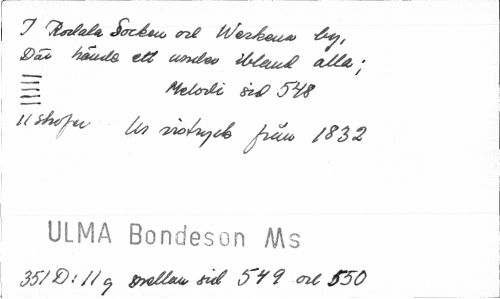 I Rodala Socken och Werkena by,
Där hände ett under ibland alla;
Melodi sid 548
11 strofer Ur vistryck från 1832
ULMA Bondeson Ms
351 D:11 g mellan sid 549 och 550